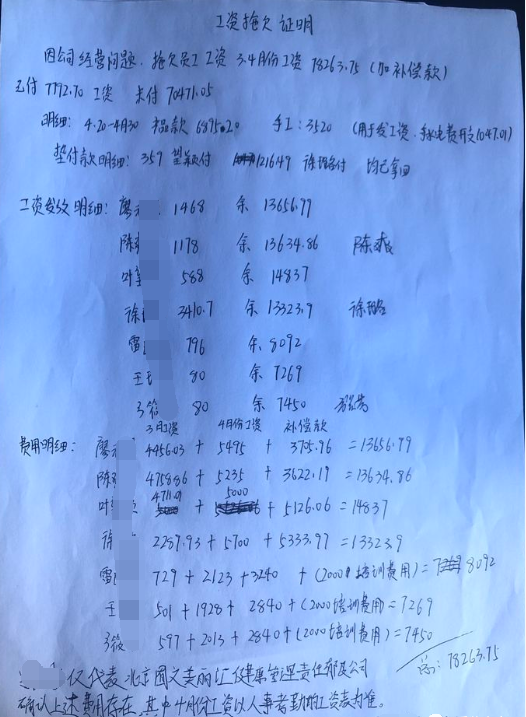 工资拖欠证明
因公司经营问题，拖欠员工工资 3.4月份工资 78263.75 (加补偿款)
已付 7792.70 工资 未付 70471.05
明细: 4.20-4月30 产品款 6895.20 手工: 3520 (用于发工资，水电费用支1047.01)
垫付款明细: 359 垫付 1216.49 徐垫付 均已拿回
工资发放明细: 廖 1468 余 13656.79
陈 1178 余 13634.86 陈
叶 588 余 14837
徐 3410.7 余 13323.9 徐
雷 796 余 8092
王 80 余 7269
80 余 7450
3月工资 4月份工资 补偿款
费用明细: 廖 4456.03 + 5495 + 3705.76 = 13656.79
陈 4758.86 + 5235 + 3622.19 = 13634.86
叶 4711.01 + 5000 + 5126.06 = 14837
徐 2287.93 + 5700 + 5333.97 = 13323.9
雷 729 + 2123 + 3240 + (2000培训费用) = 8092
王 501 + 1928 + 2840 + (2000培训费用) = 7269
597 + 2013 + 2840 + (2000培训费用) = 7450
总: 78263.75
仅代表北京国文美丽汇健康管理责任有限公司
确认上述费用存在，其中4月份工资以人事考勤的工资表为准。